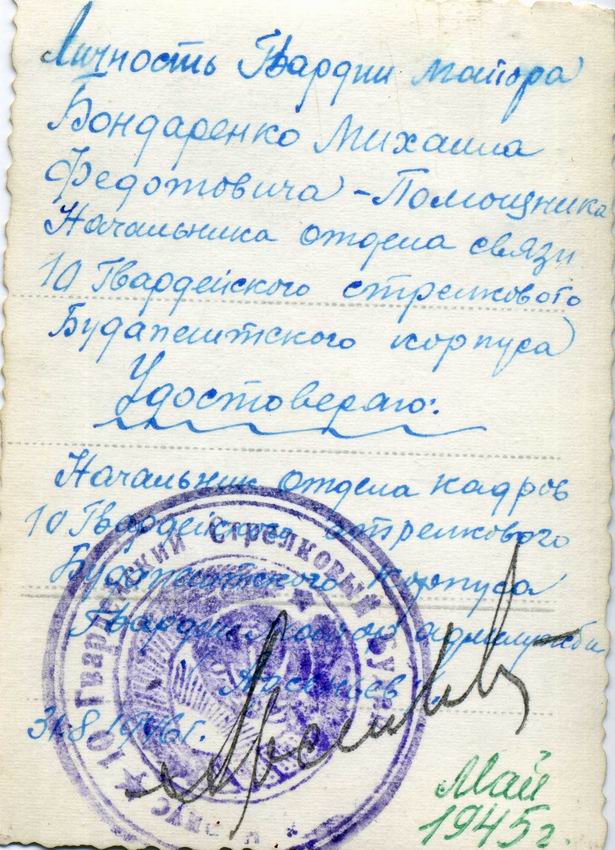 Личность Гвардии майора
Бондаренко Михаила
Федотовича - Помощника
Начальника отдела связи
10 Гвардейского стрелкового
Будапештского корпуса
Удостоверяю:
Начальник отдела кадров
10 Гвардейского стрелкового
Будапештского корпуса
Гвардии Майор адмслужбы
31.8.1946 г.
10 Гвардейский Стрелковый Корпус
Май
1945 г.